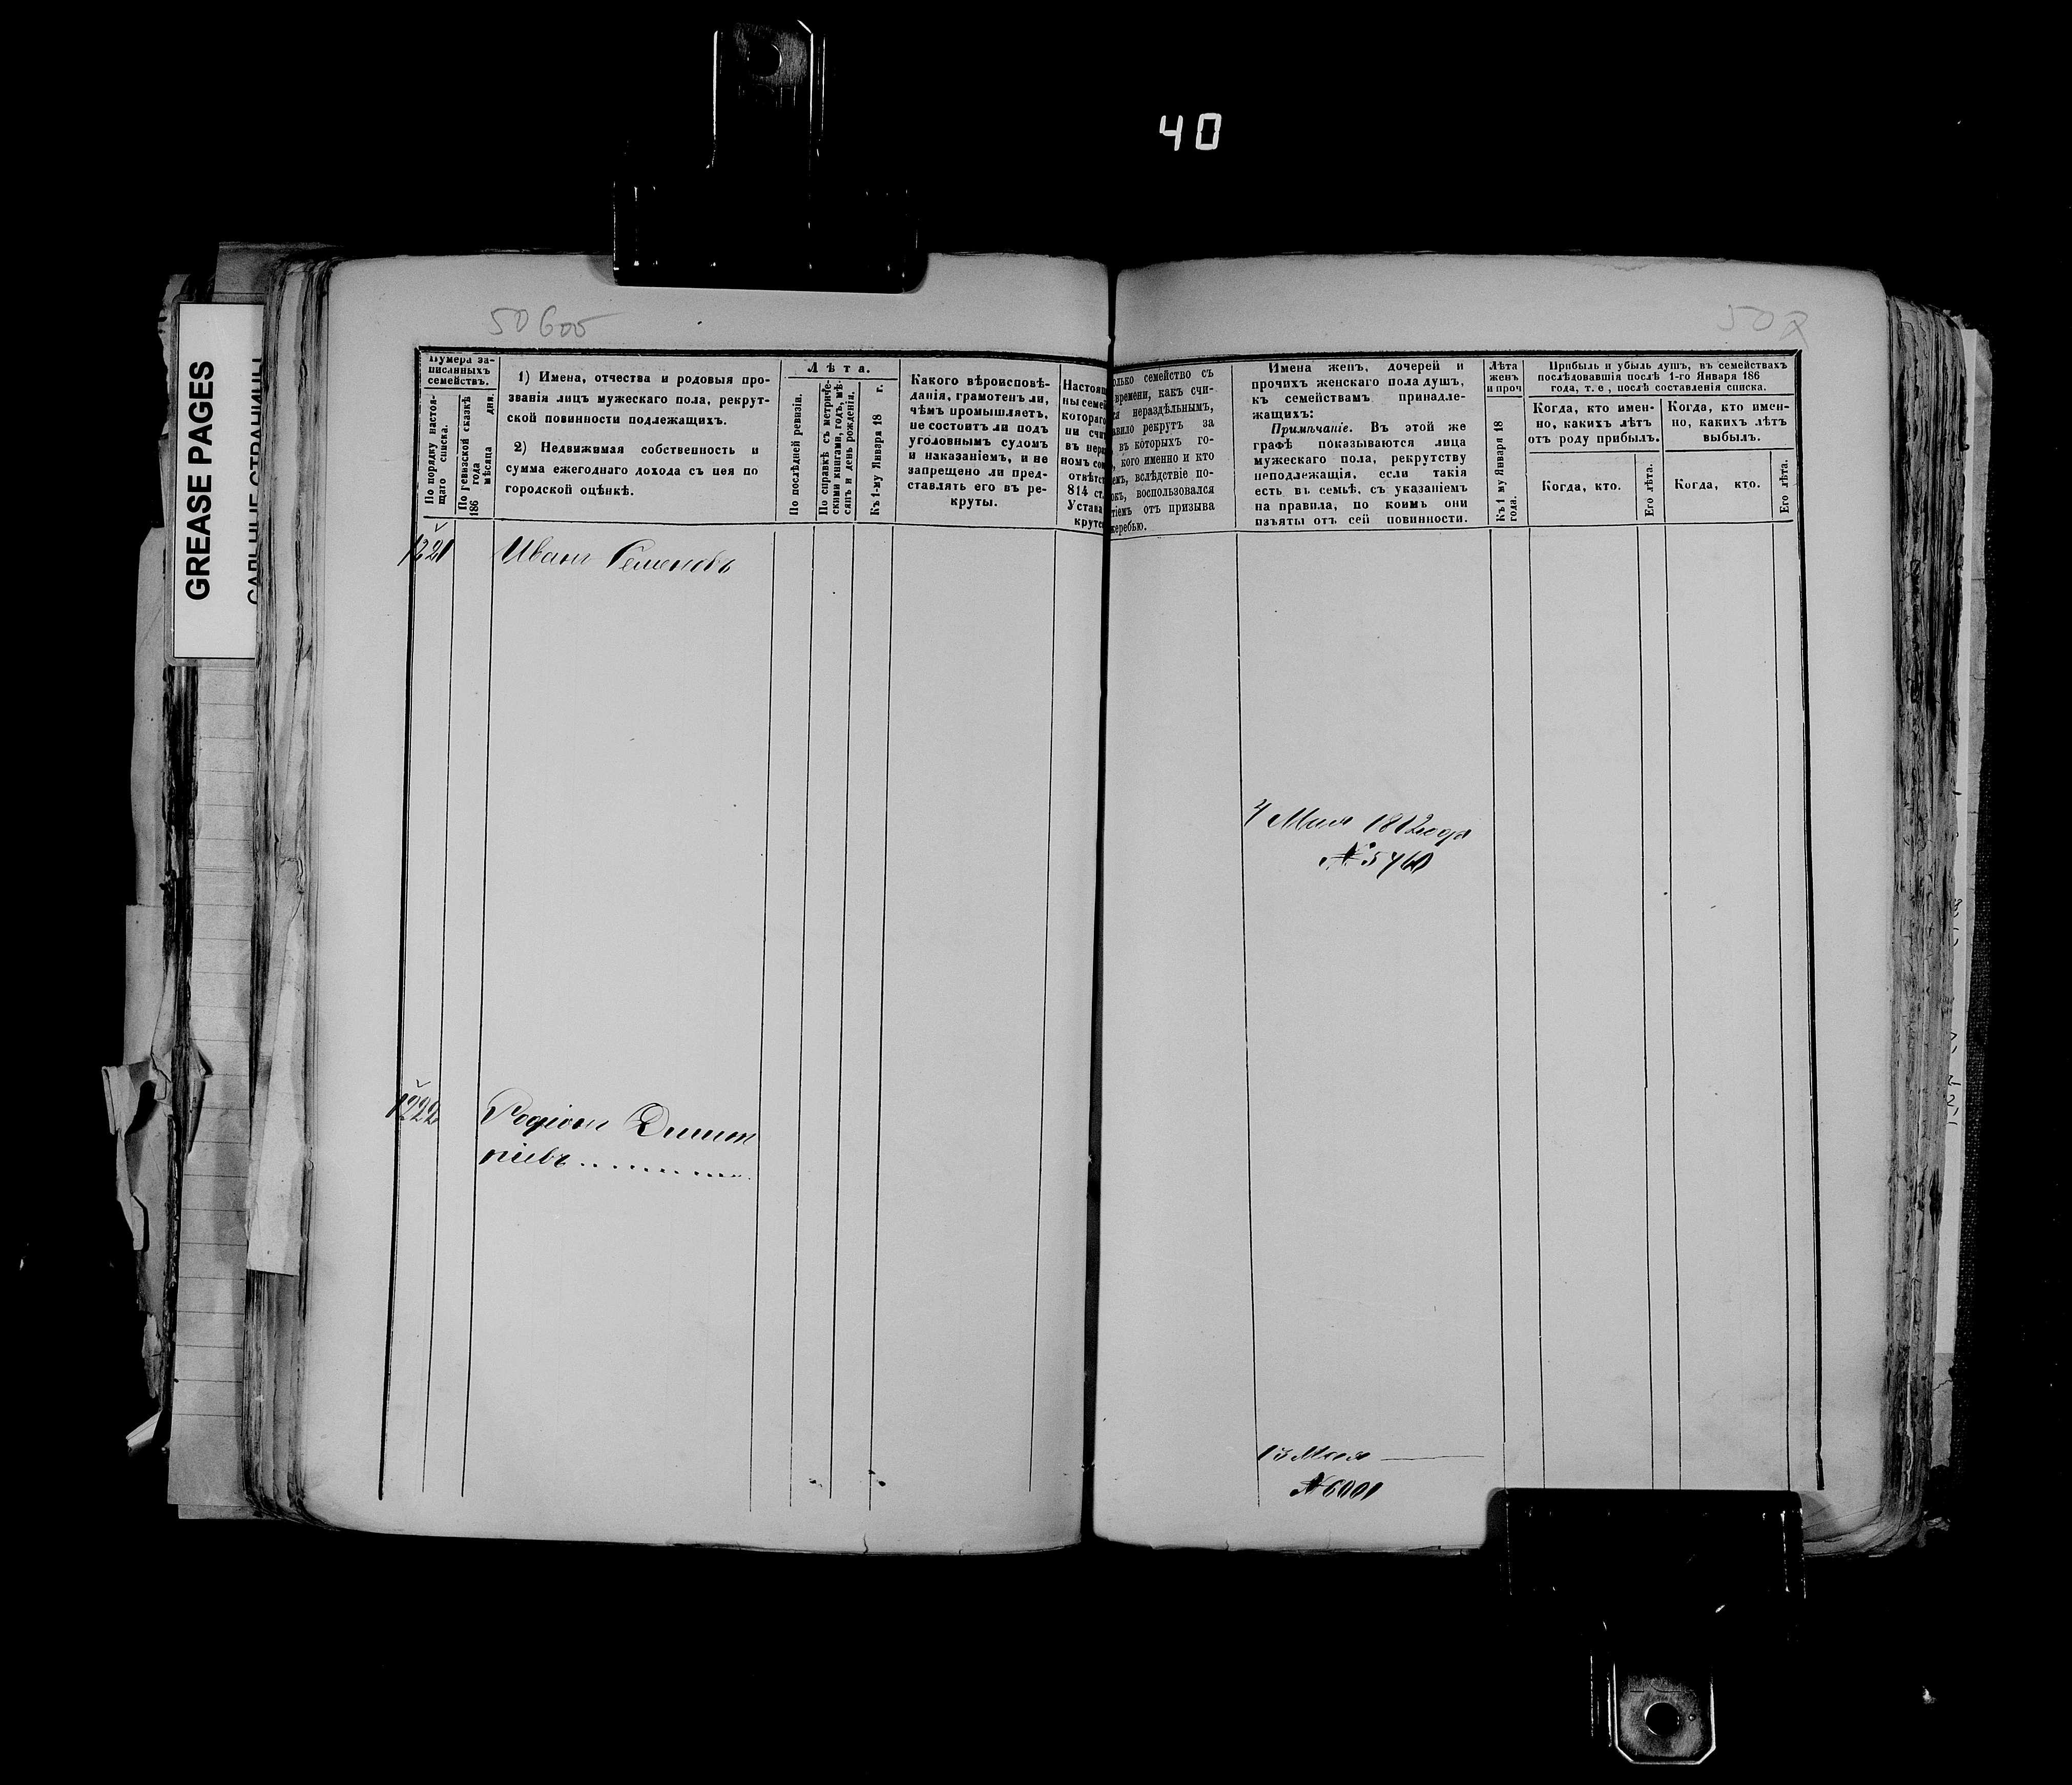 40
GREASE PAGES
50 боб
502
Нумера за-
писанныхъ
семействъ.
По порядку настоя-
щаго списка.
По ревизской сказкѣ
186 года мѣсяца дня.
1) Имена, отчества и родовыя про-
званія лицъ мужескаго пола, рекрут-
ской повинности подлежащихъ.
2) Недвижимая собственность и
сумма ежегоднаго дохода съ нея по
городской оцѣнкѣ.
Лѣта.
По послѣдней ревизіи.
По справкѣ съ метриче-
скими книгами, годъ, мѣ-
сяцъ и день рожденія.
Къ 1-му Января 18 г.
Какого вѣроисповѣ-
данія, грамотенъ ли,
чѣмъ промышляетъ,
не состоитъ ли подъ
уголовнымъ судомъ
и наказаніемъ, и не
запрещено ли пред-
ставлять его въ ре-
круты.
Настоящ
ны семей
котораго
ни счит
въ нера
номъ сос
отвѣтст
814 ст.
Устава
крутс
олько семейство съ
времени, какъ счи-
ся нераздѣльнымъ,
авило рекрутъ за
въ которыхъ го-
, кого именно и кто
емъ, вслѣдствіе по-
окъ, воспользовался
тіемъ отъ призыва
жеребью.
Имена женъ, дочерей и
прочихъ женскаго пола душъ,
къ семействамъ принадле-
жащихъ:
Примѣчаніе. Въ этой же
графѣ показываются лица
мужескаго пола, рекрутству
неподлежащія, если такія
есть въ семьѣ, съ указаніемъ
на правила, по коимъ они
изъяты отъ сей повинности.
Лѣта
женъ
и проч
Къ 1 му Января 18
года.
Прибыль и убыль душъ, въ семействахъ
послѣдовавшія послѣ 1-го Января 186
года, т. е , послѣ составленія списка.
Когда, кто имен-
но, какихъ лѣтъ
отъ роду прибылъ.
Когда, кто.
Его лѣта.
Когда, кто имен-
но, какихъ лѣтъ
выбылъ.
Когда, кто.
Его лѣта.
1221 Иванъ Семеновъ
4 Мая 1812 года
№ 5460
1222 Родіонъ Димит
ріевъ
13 Мая
№ 6001